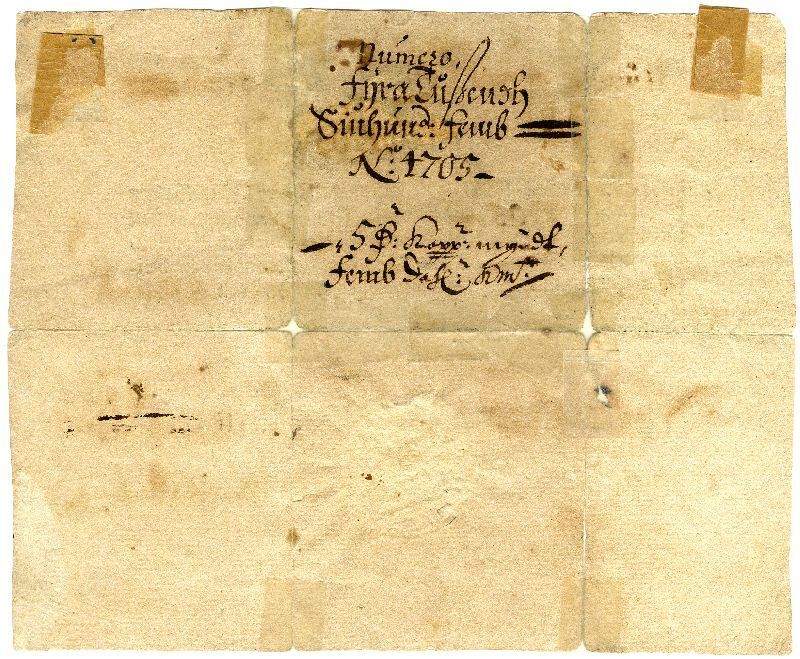 Numero
fÿra Tußendh
Siuhund: femb
No: 4705
5 D: Kopp:r myndt,
femb Dal:r Kmt: